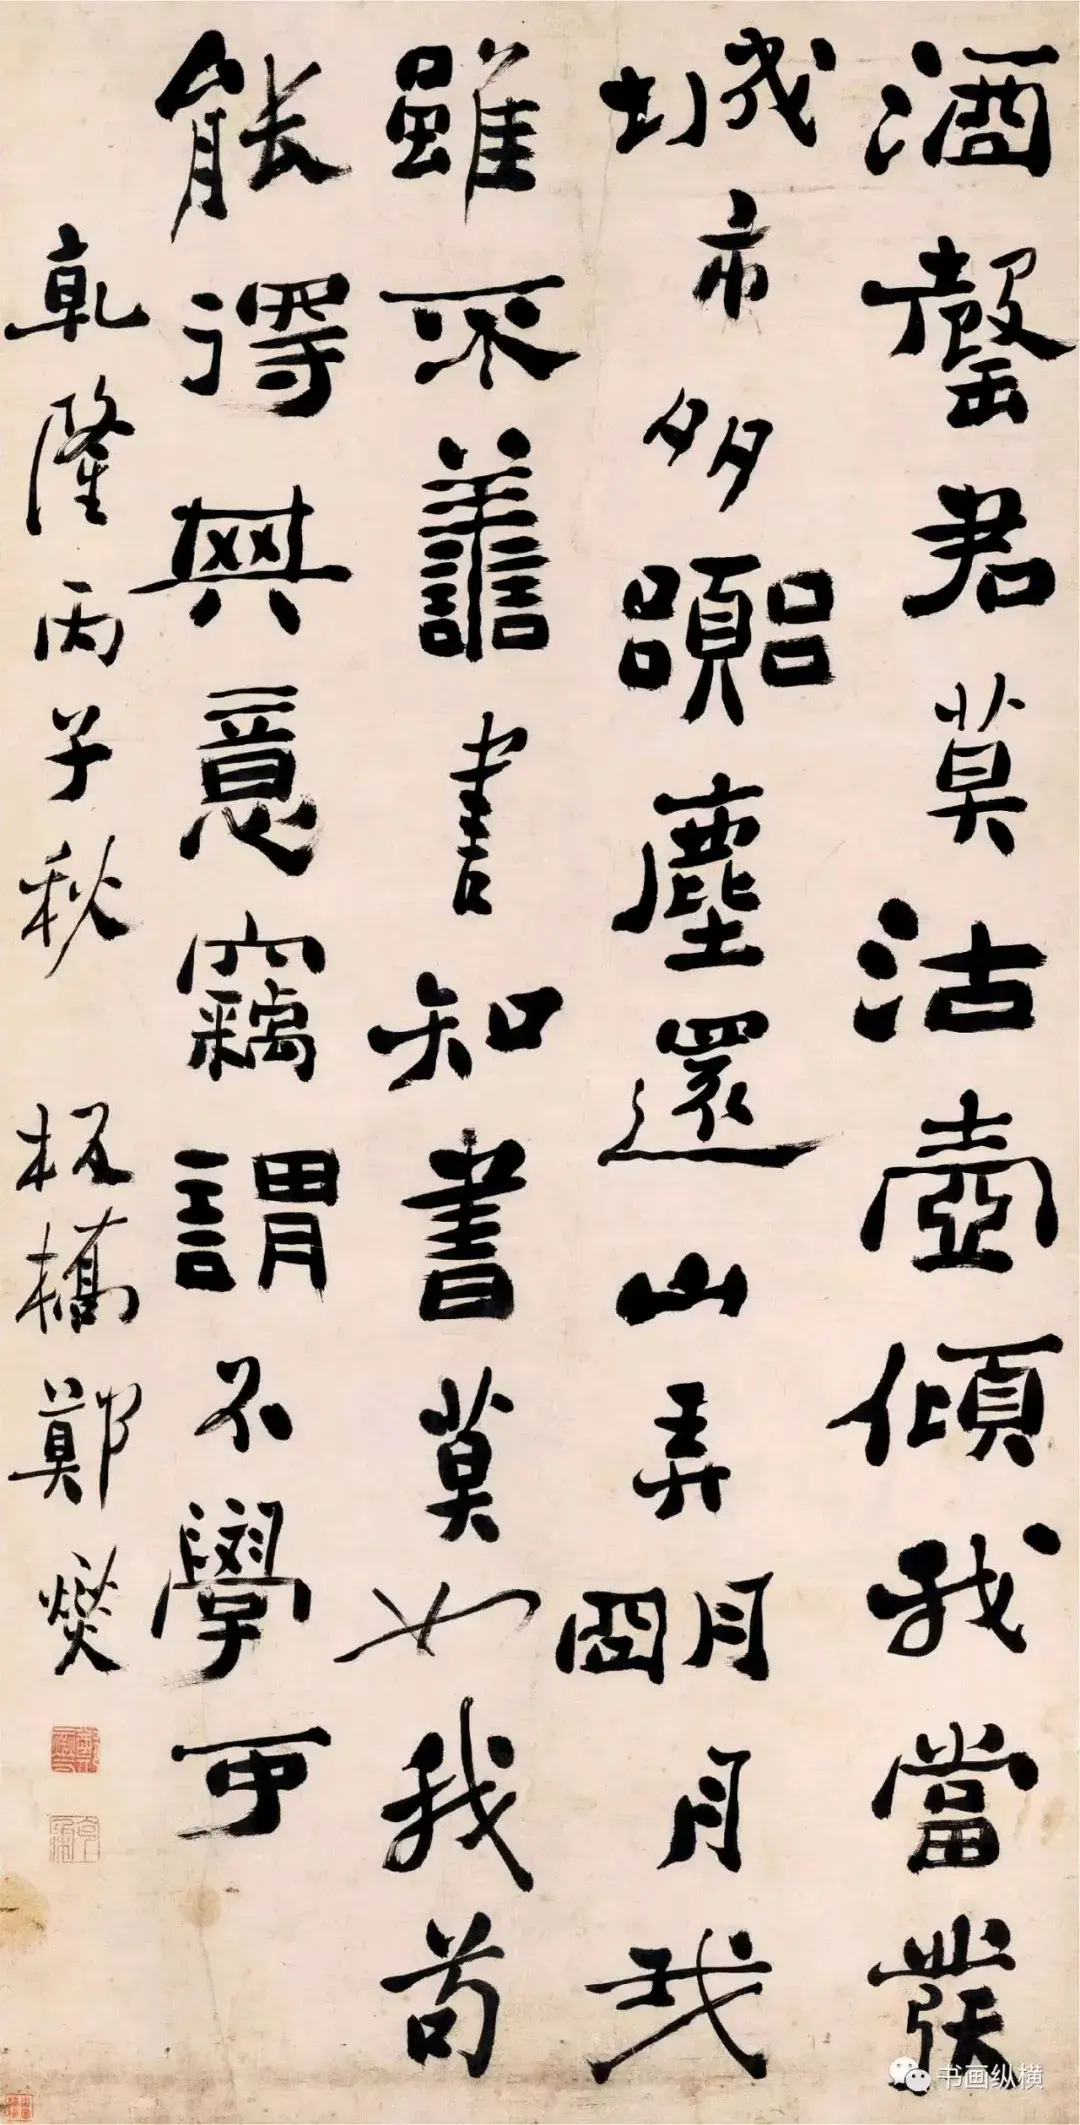 酒罄君莫沽壺傾我當發
城市多嚻塵還山弄明月我
雖不善書知書莫如我苟
能得其意竊謂不學可
乾隆丙子秋 板橋鄭燮
书画纵横